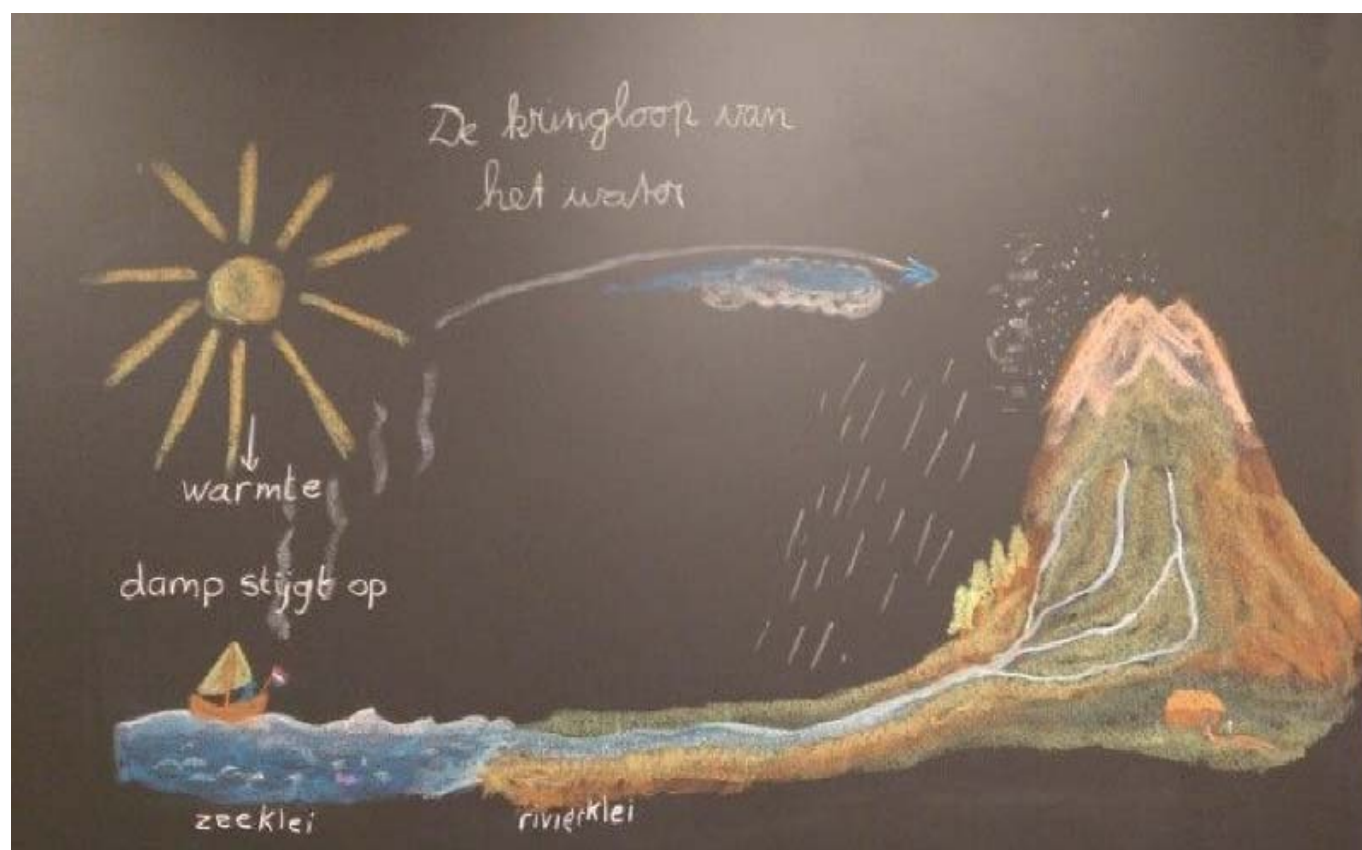 De kringloop van
het water
warmte
damp stijgt op
zeeklei
rivierklei